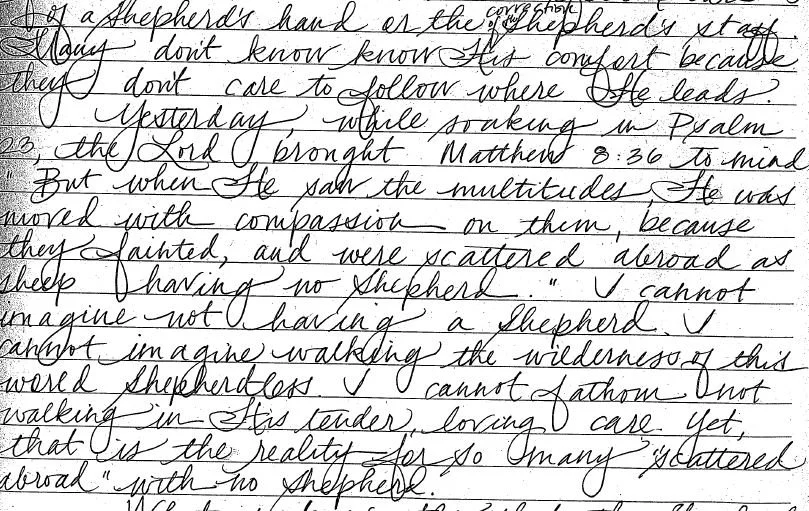 of a Shepherd's hand or the correction of the Shepherd's staff.
Many don't know know His comfort because
they don't care to follow where He leads.
Yesterday, while soaking in Psalm
23, the Lord brought Matthew 8:36 to mind
"But when He saw the multitudes, He was
moved with compassion on them, because
they fainted, and were scattered abroad as
sheep having no Shepherd." I cannot
imagine not having a Shepherd. I
cannot imagine walking the wilderness of this
world Shepherdless. I cannot fathom not
walking in His tender, loving care. Yet,
that is the reality for so many "scattered
abroad" with no Shepherd.